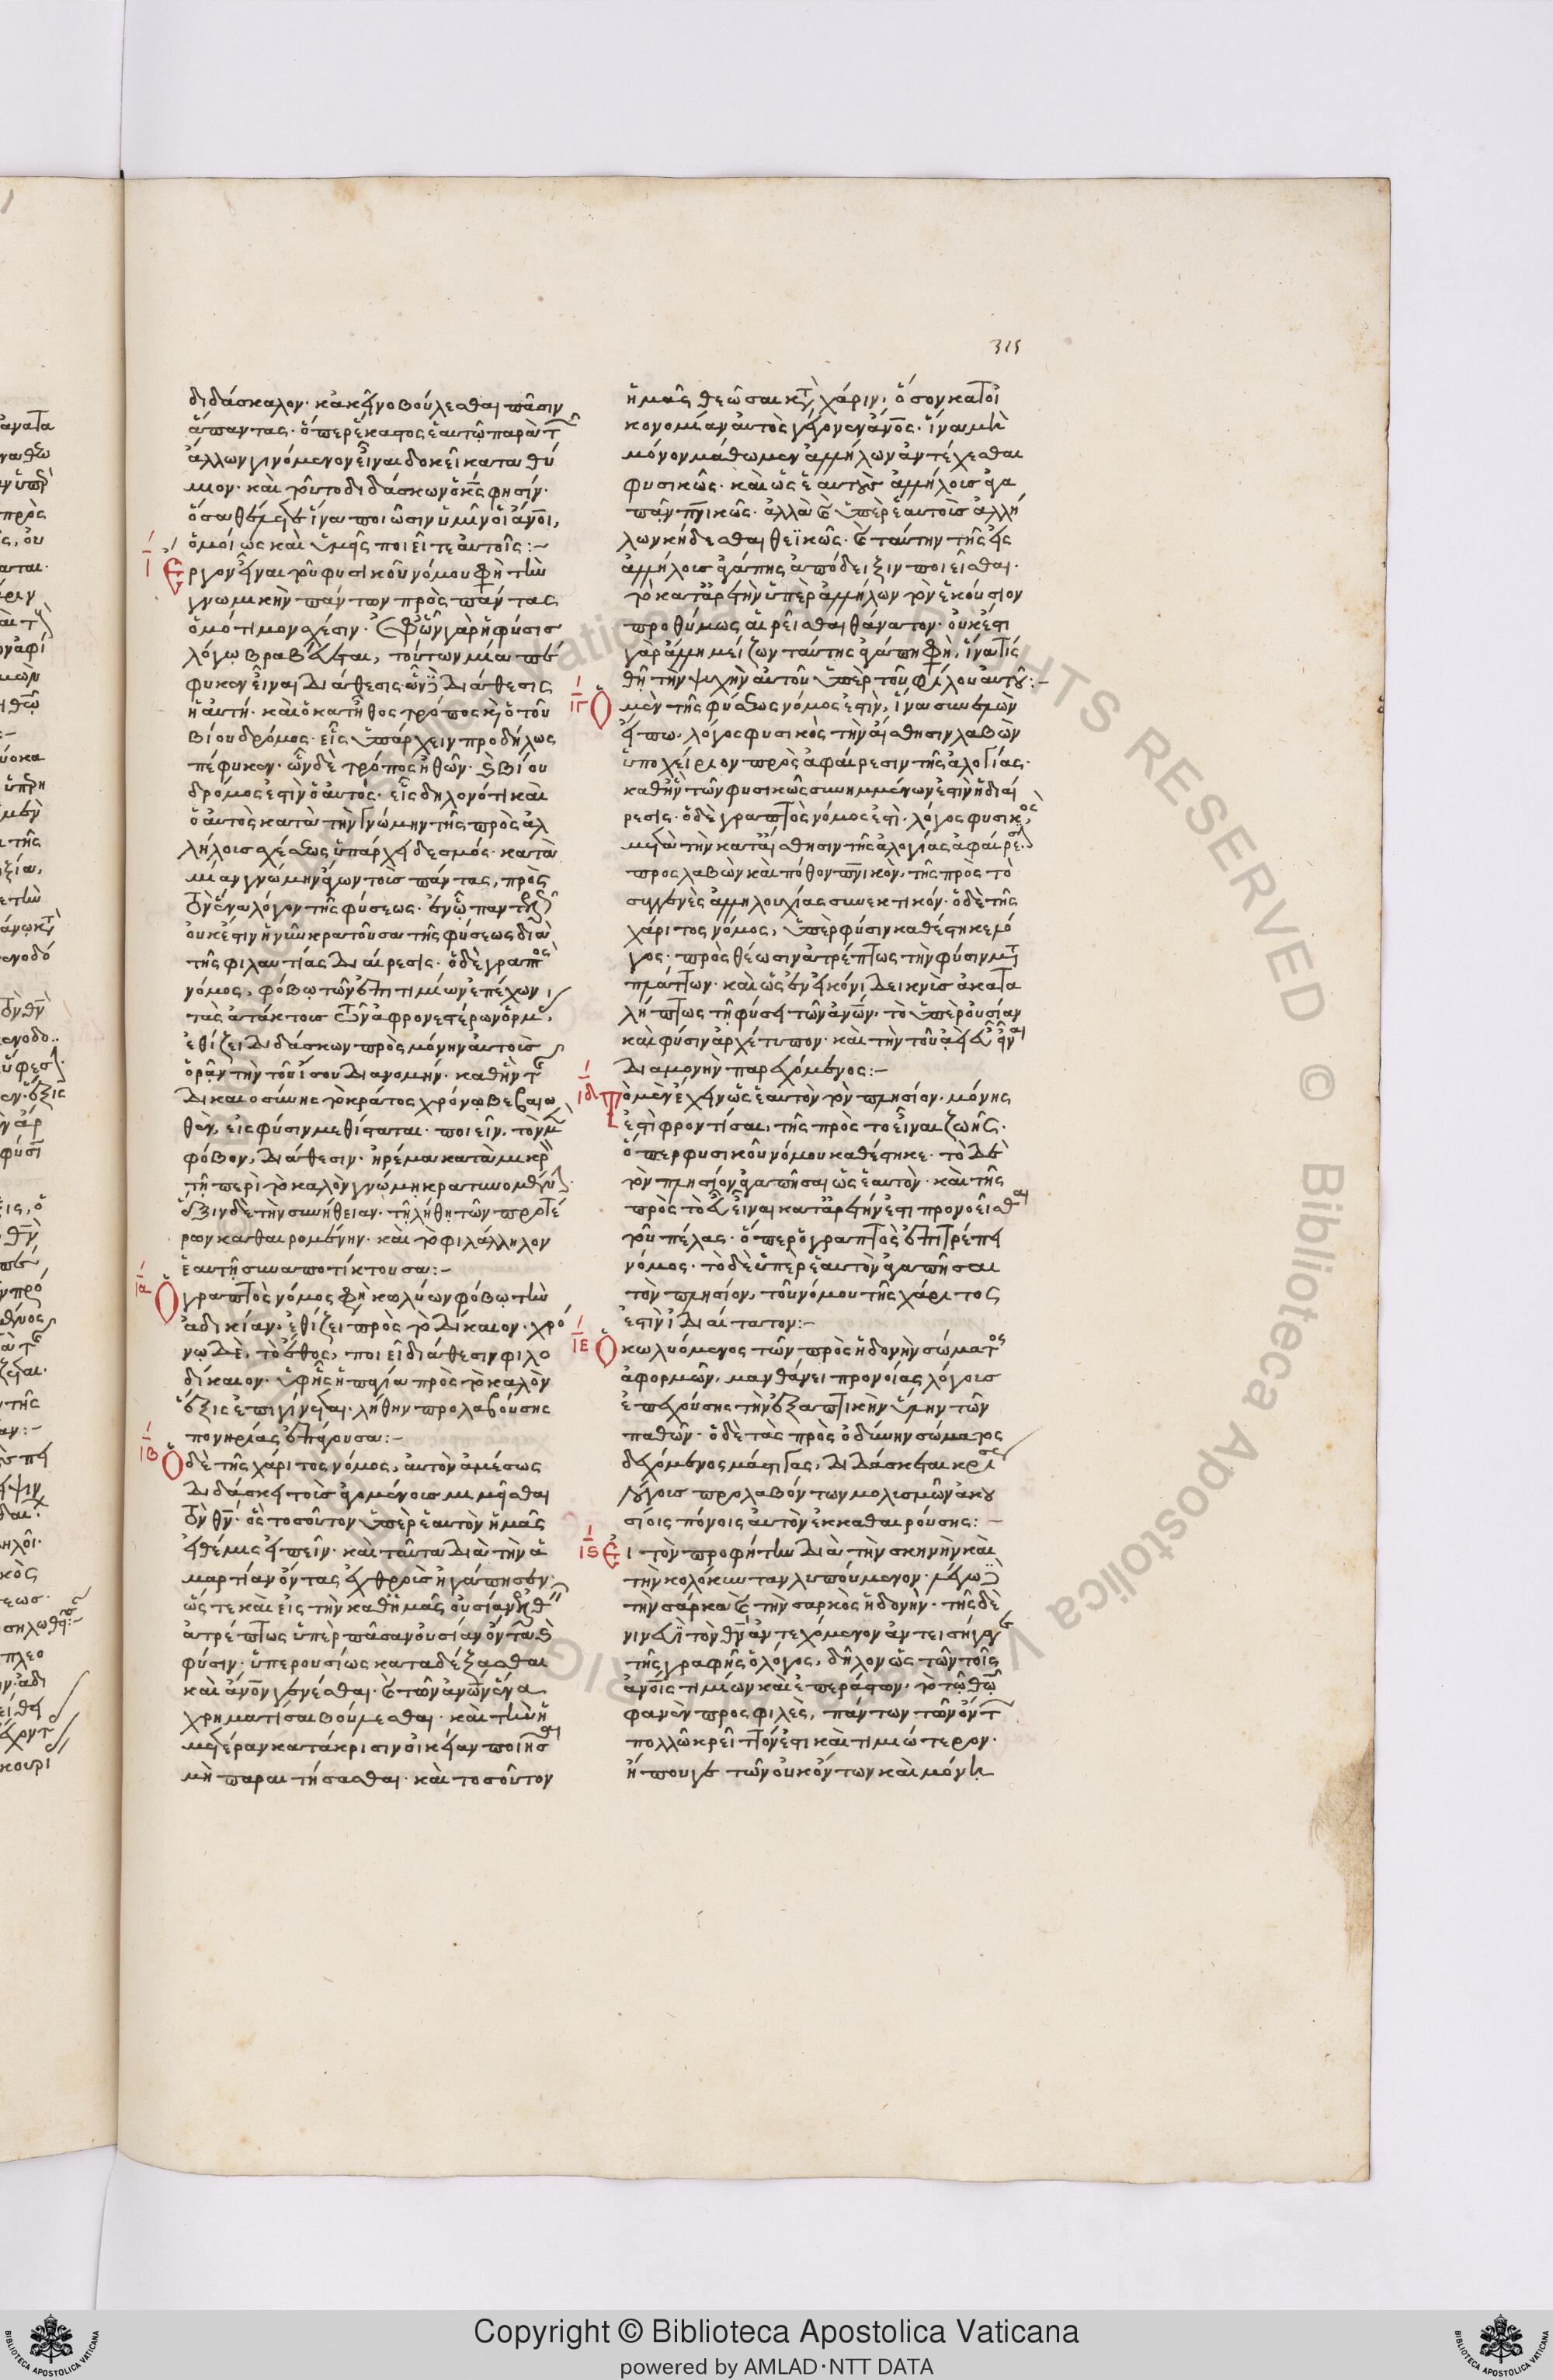 315
διδάσκαλον· κἀκεῖνο βούλεσθαι πᾶσιν
ἅπαντας· ὅπερ ἕκαστος ἑαυτῷ παρὰ τ
ἄλλων γινόμενον εἶναι δοκεῖ καταθύ
μιον· καὶ τοῦτο διδάσκων ὁ κς φησίν·
ὅσα θέλετε ἵνα ποιῶσιν ὑμῖν οἱ ἄνοι,
ὁμοίως καὶ ὑμεῖς ποιεῖτε αὐτοῖς:-
Ι Ἔργον εἶναι τοῦ φυσικοῦ νόμου φη τὴν
γνωμικὴν πάντων πρὸς πάντας
ὁμότιμον σχέσιν· ἐφ' ὧν γὰρ ἡ φύσις
λόγω βραβεύεται, τούτων μία πέ
φυκεν εἶναι διάθεσις· ὧν διάθεσις
ἡ αὐτή· καὶ ὁ κατ' ἦθος τρόπος κ ὁ τοῦ
βίου δρόμος· εἷς ὑπάρχειν προδήλως
πέφυκεν· ὧν δὲ τρόπος ἠθῶν· κ βίου
δρόμος ἐστὶν ὁ αὐτός· εἷς δηλονότι καὶ
ὁ αὐτὸς κατὰ τὴν γνώμην τῆς πρὸς ἀλ
λήλους σχέσεως ὑπάρχει δεσμός· κατὰ
μίαν γνώμην ἄγων τοὺς πάντας, πρὸς
τὸν ἕνα λόγον τῆς φύσεως· ἐν ᾧ παντελ
οὐκ ἔστιν ἡ νῦν κρατοῦσα τῆς φύσεως διὰ
τῆς φιλαυτίας διαίρεσις· ὁ δὲ γραπτος
νόμος, φόβω τῶν ἐπιτιμίων ἐπέχων
τὰς ἀτάκτους τῶν ἀφρονεστέρων ὁρμ,
ἐθίζει διδάσκων πρὸς μόνην αὐτοὺς
ὁρᾶν τὴν τοῦ ἴσου διανομήν· καθ' ἣν τ
δικαιοσύνης τὸ κράτος χρόνω βεβαιω
θὲν, εἰς φύσιν μεθίσταται· ποιεῖν, τὸν μ
φόβον, διάθεσιν· ἠρέμα κατὰ μικρ
τῇ περὶ τὸ καλὸν γνώμη κρατυνομέν
ἕξιν δὲ τὴν συνήθειαν· τῇ λήθη τῶν προτέ
ρων καθαιρομένην· καὶ τὸ φιλάλληλον
ἑαυτῇ συναποτίκτουσα:-
ΙΑ Ὁ γραπτὸς νόμος φη κωλύων φόβω τὴν
ἀδικίαν, ἐθίζει πρὸς τὸ δίκαιον· χρό
νω δὲ, τὸ ἔθος, ποιεῖ διάθεσιν φιλο
δίκαιον· ὑφ' ἧς ἡ παγία πρὸς τὸ καλὸν
ἕξις ἐπιγίνεται· λήθην προλαβούσης
πονηρίας ἐπάγουσα:-
ΙΒ Ὁ δὲ τῆς χάριτος νόμος, αὐτὸν ἀμέσως
διδάσκει τοὺς ἀγομένους μιμεῖσθαι
τὸν θν· ὃς τοσοῦτον ὑπὲρ ἑαυτὸν ἡμᾶς
εἰ θέμις εἰπεῖν· καὶ ταῦτα διὰ τὴν ἁ
μαρτίαν ὄντας ἐχθροὺς ἠγάπησεν·
ὥστε καὶ εἰς τὴν καθ' ἡμᾶς οὐσίαν ἐλθ
ἀτρέπτως ὑπὲρ πᾶσαν οὐσίαν ὄντα κ
φύσιν· ὑπερουσίως καταδέξασθαι
καὶ ἄνον γενέσθαι· καὶ τῶν ἀνων ἕνα
χρηματίσαι βούλεσθαι· καὶ τὴν ἡ
μετέραν κατάκρισιν οἰκείαν ποιῆσαι
μὴ παραιτήσασθαι· καὶ τοσοῦτον
ἡμᾶς θεῶσαι κατ χάριν, ὅσον κατ' οἰ
κονομίαν αὐτὸς γέγονεν ἄνος· ἵνα μὴ
μόνον μάθωμεν ἀλλήλων ἀντέχεσθαι
φυσικῶς· καὶ ὡς ἑαυτοὺς ἀλλήλους ἀγα
πᾶν πνικῶς· ἀλλὰ καὶ ὑπὲρ ἑαυτοὺς ἀλλή
λων κήδεσθαι θεϊκῶς· καὶ ταύτην τῆς εἰς
ἀλλήλους ἀγάπης ἀπόδειξιν ποιεῖσθαι·
τὸ κατ' ἀρετὴν ὑπὲρ ἀλλήλων τὸν ἑκούσιον
προθύμως αἱρεῖσθαι θάνατον· οὐκ ἔστι
γὰρ ἄλλη μείζων ταύτης ἀγάπη φη, ἵνα τίς
θῇ τὴν ψυχὴν αὐτοῦ ὑπὲρ τοῦ φίλου αὐτοῦ:-
ΙΓ Ὁ μὲν τῆς φύσεως νόμος ἐστὶν, ἵνα συνελὼν
εἴπω, λόγος φυσικὸς τὴν αἴσθησιν λαβὼν
ὑποχείριον πρὸς ἀφαίρεσιν τῆς ἀλογίας·
καθ' ἣν τῶν φυσικῶς συνημμένων ἐστὶν ἡ διαί
ρεσις· ὁ δὲ γραπτὸς νόμος ἐστὶ, λόγος φυσικος
μετὰ τὴν κατ' αἴσθησιν τῆς ἀλογίας ἀφαίρε.
προσλαβὼν καὶ πόθον πνικὸν, τῆς πρὸς τὸ
συγγενὲς ἀλληλουχίας συνεκτικόν· ὁ δὲ τῆς
χάριτος νόμος, ὑπὲρ φύσιν καθέστηκε λό
γος· πρὸς θέωσιν ἀτρέπτως τὴν φύσιν μετ
πλάττων· καὶ ὡς ἐν εἰκόνι δεικνὺς ἀκατα
λήπτως τῇ φύσει τῶν ἀνων, τὸ ὑπὲρ οὐσίαν
καὶ φύσιν ἀρχέτυπον· καὶ τὴν τοῦ ἀεὶ εὖ εἶναι
διαμονὴν παρεχόμενος:-
ΙΔ Τὸ μὲν ἔχειν ὡς ἑαυτὸν τὸν πλησίον, μόνης
ἐστὶ φροντίσαι, τῆς πρὸς τὸ εἶναι ζωῆς·
ὅπερ φυσικοῦ νόμου καθέστηκε· τὸ δὲ
τὸν πλησίον ἀγαπῆσαι ὡς ἑαυτὸν· καὶ τῆς
πρὸς τὸ εὖ εἶναι κατ' ἀρετὴν ἐστι προνοεῖσθαι
τοῦ πέλας· ὅπερ ὁ γραπτὸς ἐπιτρέπει
νόμος· τὸ δὲ ὑπὲρ ἑαυτὸν ἀγαπῆσαι
τὸν πλησίον, τοῦ νόμου τῆς χάριτος
ἐστὶν ἰδιαίτατον:-
ΙΕ Ὁ κωλυόμενος τῶν πρὸς ἡδονὴν σώματος
ἀφορμῶν, μανθάνει προνοίας λόγους
ἐπεχούσης τὴν ἐξαπτικὴν ὕλην τῶν
παθῶν· ὁ δὲ τὰς πρὸς ὀδύνην σώματος
δεχόμενος μάστιγας, διδάσκεται κρίσε
λόγους προλαβόντων μολυσμῶν ἀκου
σίοις πόνοις αὐτὸν ἐκκαθαιρούσης:-
ΙϚ Εἰ τὸν προφήτην διὰ τὴν σκηνὴν καὶ
τὴν κολόκυνταν λυπούμενον· λέγω
τὴν σάρκα καὶ τὴν σαρκὸς ἡδονὴν· τῆς δὲ
νινευῒ τὸν θν ἀντεχόμενον ἀντεισήγαγε
τῆς γραφῆς ὁ λόγος, δῆλον ὡς τῶν τοῖς
ἀνοις τιμίων καὶ ἐπεράστων, τὸ τῷ θῷ
φανὲν προσφιλὲς, πάντων τῶν ὄντ
πολλῶ κρεῖττόν ἐστι καὶ τιμιώτερον·
ἤπουγε τῶν οὐκ ὄντων καὶ μόνη